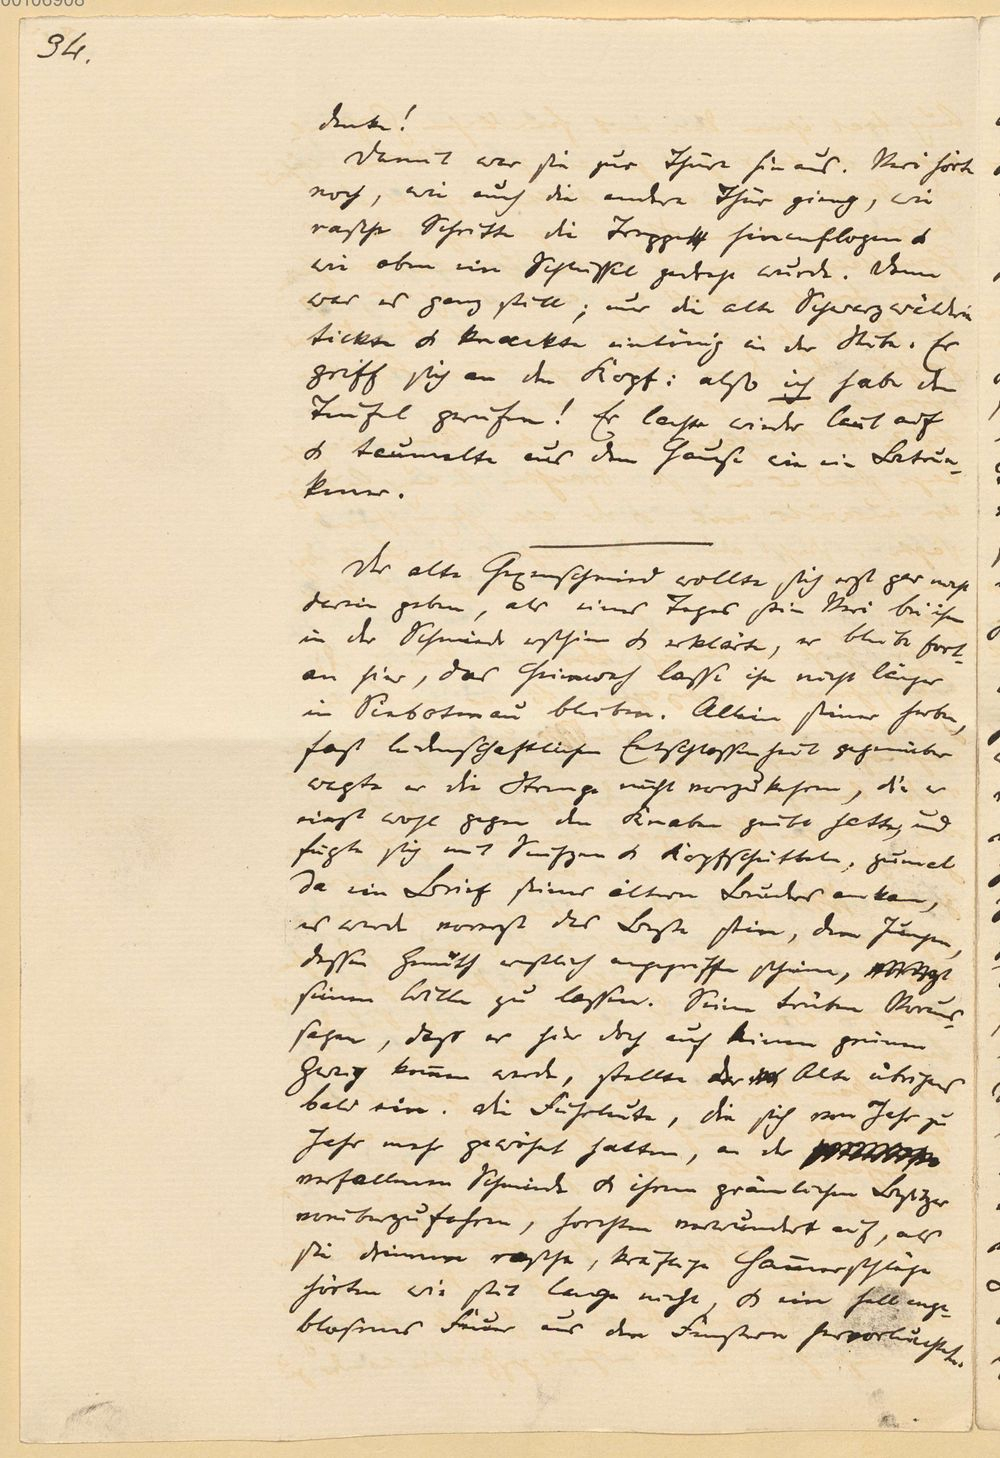 60106908
94.
denke!
Damit war sie zur Thüre hinaus. Veri hörte
noch, wie auch die andere Thür gieng, wie
rasche Schritte die Treppe hinaufflogen &
wie oben ein Schlüssel gedreht wurde. Dann
war es ganz still; nur die alte Schwarzwälderin
tickte & knackte eintönig in der Stube. Er
griff sich an den Kopf: also ich habe den
Teufel gerufen! Er lachte wieder laut auf
& taumelte aus dem Hause wie ein Betrun-
kener.
Der alte Hexenschmied wollte sich erst gar nicht
darein geben, als eines Tages sein Veri bei ihm
in der Schmiede erschien & erklärte, er bleibe fort-
an hier, das Heimweh lasse ihn nicht länger
in bleiben. Allein seiner herben,
fast leidenschaftlichen Entschlossenheit gegenüber
wagte er die Strenge nicht vorzukehren, die er
einst wohl gegen den Knaben geübt hatte, und
fügte sich mit Seufzen & Kopfschütteln, zumal
da ein Brief seines ältern Bruders ankam,
es werde vorerst das Beste sein, dem Jungen,
dessen Gemüth ernstlich angegriffen scheine,
seinen Willen zu lassen. Seine trüben Voraus-
sagen, dass er hier doch auf keinen grünen
Zweig kommen werde, stellte der Alte übrigens
bald ein. Die Fuhrleute, die sich von Jahr zu
Jahr mehr gewöhnt hatten, an der
verfallenen Schmiede & ihrem grämlichen Besitzer
vorüberzufahren, horchten verwundert auf, als
sie drinnen rasche, kräftige Hammerschläge
hörten wie seit lange nicht, & ein hell ange-
blasenes Feuer aus den Fenstern hervorleuchtete.